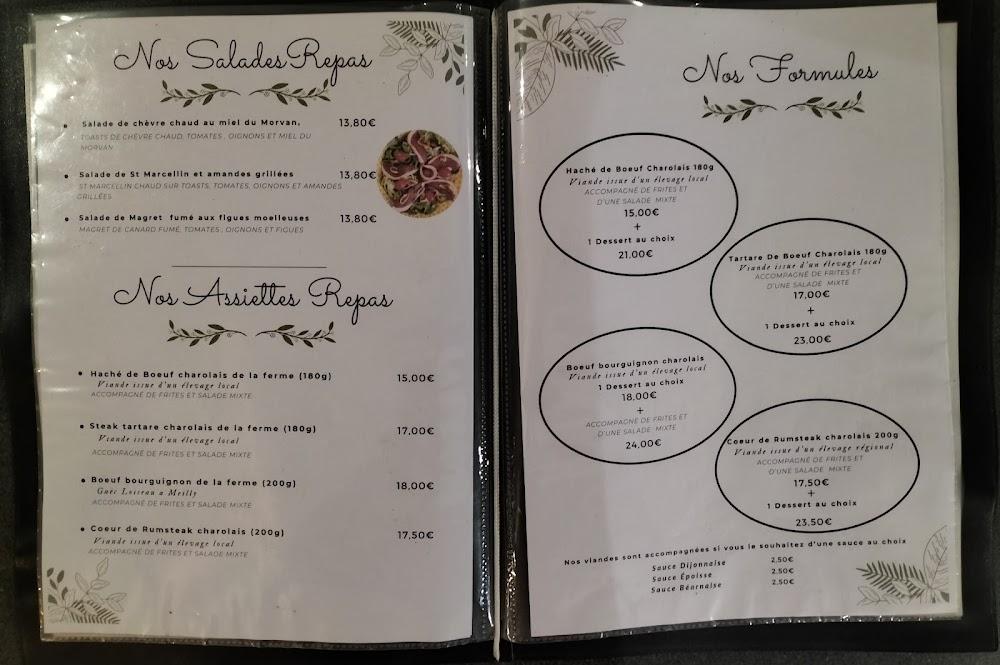 Nos Salades Repas
Salade de chèvre chaud au miel du Morvan, 13,80€
TOASTS DE CHÈVRE CHAUD, TOMATES , OIGNONS ET MIEL DU
MORVAN
Salade de St Marcellin et amandes grillées 13,80€
ST MARCELLIN CHAUD SUR TOASTS, TOMATES, OIGNONS ET AMANDES
GRILLÉES
Salade de Magret fumé aux figues moelleuses 13,80€
MAGRET DE CANARD FUMÉ, TOMATES , OIGNONS ET FIGUES
Nos Assiettes Repas
Haché de Boeuf charolais de la ferme (180g) 15,00€
Viande issue d'un élevage local
ACCOMPAGNÉ DE FRITES ET SALADE MIXTE
Steak tartare charolais de la ferme (180g) 17,00€
Viande issue d'un élevage local
ACCOMPAGNÉ DE FRITES ET SALADE MIXTE
Boeuf bourguignon de la ferme (200g) 18,00€
Gaëc Loiseau a Meilly
ACCOMPAGNÉ DE FRITES ET SALADE MIXTE
Coeur de Rumsteak charolais (200g) 17,50€
Viande issue d'un élevage local
ACCOMPAGNÉ DE FRITES ET SALADE MIXTE
Nos Formules
Haché de Boeuf Charolais 180g
Viande issue d'un élevage local
ACCOMPAGNÉ DE FRITES ET
D'UNE SALADE MIXTE
15,00€
+
1 Dessert au choix
21,00€
Tartare De Boeuf Charolais 180g
Viande issue d'un élevage local
ACCOMPAGNÉ DE FRITES ET
D'UNE SALADE MIXTE
17,00€
+
1 Dessert au choix
23,00€
Boeuf bourguignon charolais
Viande issue d'un élevage local
1 Dessert au choix
18,00€
+
ACCOMPAGNÉ DE FRITES ET
D'UNE SALADE MIXTE
24,00€
Coeur de Rumsteak charolais 200g
Viande issue d'un élevage régional
ACCOMPAGNÉ DE FRITES ET
D'UNE SALADE MIXTE
17,50€
+
1 Dessert au choix
23,50€
Nos viandes sont accompagnées si vous le souhaitez d'une sauce au choix
Sauce Dijonnaise 2,50€
Sauce Époisse 2,50€
Sauce Béarnaise 2,50€